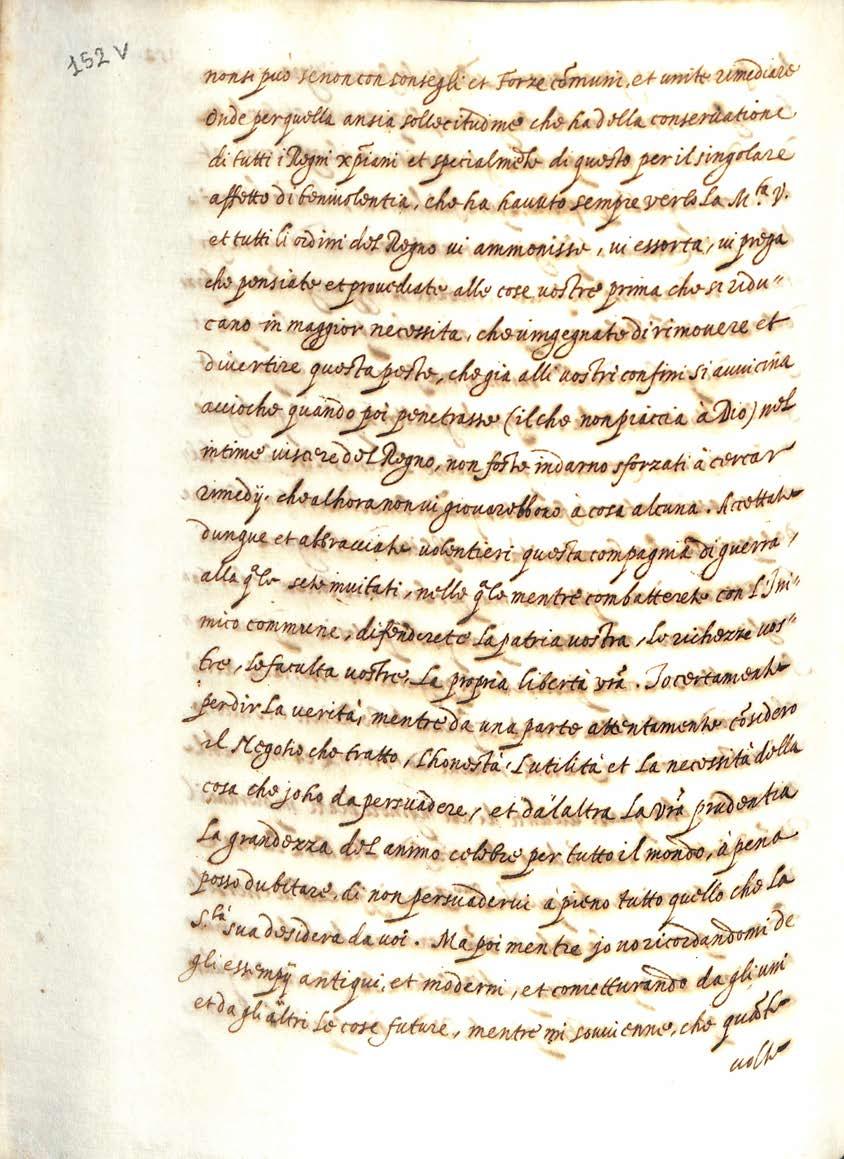 152 v
non si può se non con consegli et Forze cõmuni, et unite rimediare
Onde per quella ansia sollecitudine che ha della conservatione
di tutti i Regni xp̃iani et specialmẽte di questo per il singolare
affetto di benivolentia, che ha havuto sempre verso La M.ta V.
et tutti li ordini del Regno vi ammonisse, vi essorta, vi prega
che pensiate et provediate alle cose vostre prima che si ridu"
cano in maggior necessita, che v'ingegnate di rimovere et
divertire questa peste, che gia alli vostri confini si avvicina
accioche quando poi penetrasse (il che non piaccia à Dio) nel
intime viscere del Regno, non foste indarno sforzati à cercar
rimedÿ, che alhora non vi giovarebbono à cosa alcuna. Accettate
dunque et abbracciate volentieri questa compagnia di guerra,
alla q̃le sete invitati, nelle q̃le mentre combatterete con L'Ini"
mico commune, difenderete La patria vostra, le richezze vos"
tre, le faculta vostre, La propria libertà vrã. Io certamente
per dir La verità, mentre da una parte attentamente cõsidero
il Negotio che tratto, L'honestà, L'utilità et La necessità della
cosa che jo ho da persuadere, et dall'altra La vrã prudentia
La grandezza del animo celebre per tutto il mondo, à pena
posso dubitare, di non persuadervi à pieno tutto quello che La
S.tà sua desidera da voi. Ma poi mentre jo vo ricordandomi de
gli essempÿ antiqui, et moderni, et conietturando da gli uni
et da gli altri le cose future, mentre mi sovvienne, che quãte
volte